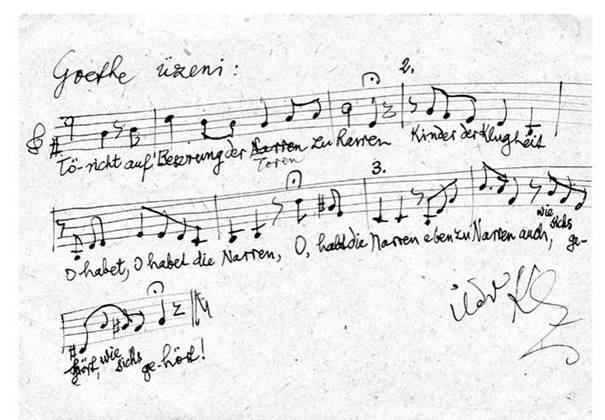 Goethe üzeni:
2.
Tö-richt auf Besserung der Narren zu harren Kinder der Klugheit
Toren
3.
O habet, O habet die Narren, O, habt die Narren eben zu Narren auch, wie sichs ge-
hört, wie sichs ge-hört!